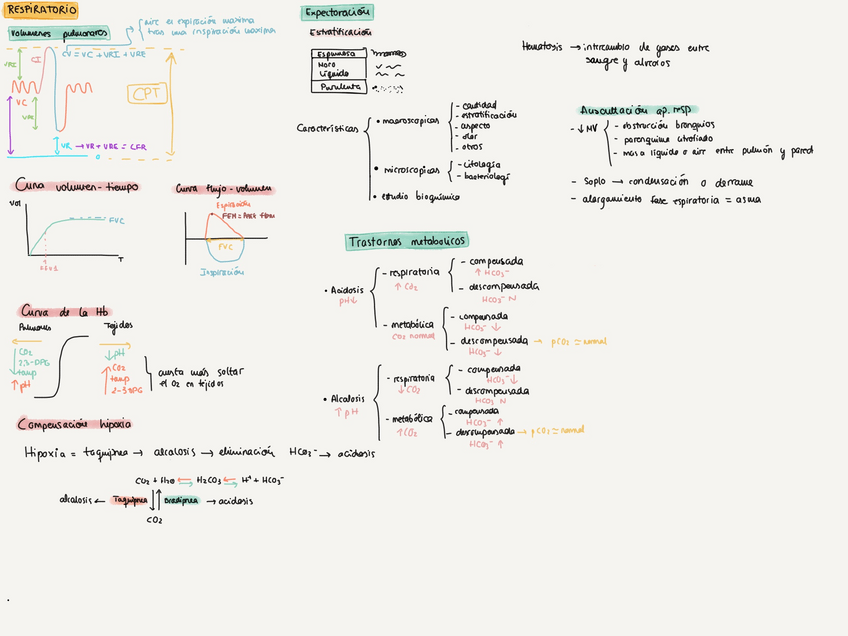 RESPIRATORIO
Volumenes pulmonares
aire es espiración maxima
tras una inspiración maxima
CV = VC + VRI + VRE
VRI
CI
VC
VRE
CPT
VR → VR + VRE = CFR
0
Curva volumen-tiempo
Vol
FVC
FEV1
T
Curva flujo-volumen
Espiración
FEM = Peak flow
FVC
Inspiración
Curva de la Hb
Pulmones
Tejidos
CO2
2,3-DPG
temp
↑ pH
↓ pH
CO2
temp
2-3 DPG
cuesta más soltar
el O2 en tejidos
Compensación hipoxia
Hipoxia = taquipnea → alcalosis → eliminación HCO3⁻ → acidosis
CO2 + H2O ⇌ H2CO3 ⇌ H⁺ + HCO3⁻
alcalosis ← Taquipnea Bradipnea → acidosis
CO2
Expectoración
Estratificación
Espumosa
Moco
Líquido
Purulenta
Características
• macroscopicas
- cantidad
- estratificación
- aspecto
- olor
- otros
• microscopicas
- citología
- bacteriología
• estudio bioquímico
Trastornos metabolicos
• Acidosis
pH↓
- respiratoria
↑ CO2
- compensada
↑ HCO3⁻
- descompensada
HCO3⁻ N
- metabólica
CO2 normal
- compensada
HCO3⁻ ↓
- descompensada → pCO2 = normal
HCO3⁻ ↓
• Alcalosis
↑ pH
- respiratoria
↓ CO2
- compensada
HCO3⁻ ↓
- descompensada
HCO3 N
- metabólica
↑ CO2
- compensada
HCO3⁻ ↑
- descompensada → pCO2 = normal
HCO3⁻ ↑
Hematosis → intercambio de gases entre
sangre y alveolos
Auscultación ap. resp
- ↓ MV
- obstrucción bronquios
- parenquima atrofiado
- masa líquido o aire entre pulmón y pared
- Soplo → condensación o derrame
- alargamiento fase respiratoria = asma